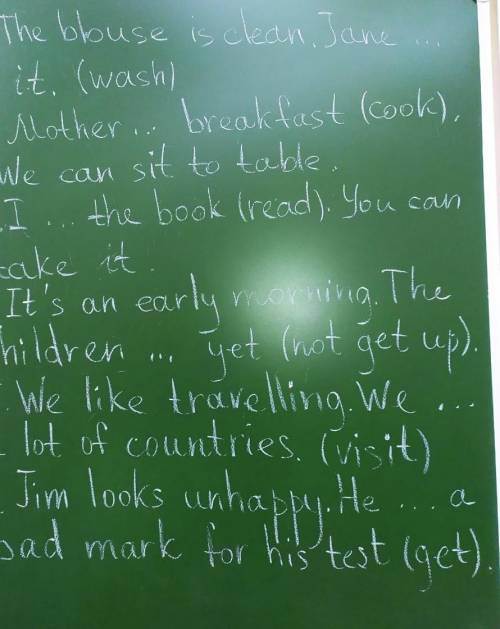 The blouse is clean. Jane ...
it. (wash)
Mother ... breakfast (cook).
We can sit to table.
I ... the book (read). You can
take it.
It's an early morning. The
hildren ... yet (not get up).
We like travelling. We ...
lot of countries. (visit)
Jim looks unhappy. He ... a
bad mark for his test (get).